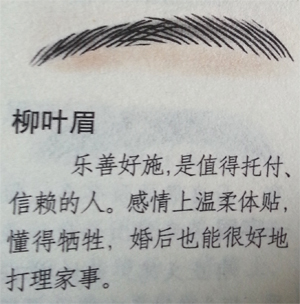 柳叶眉
乐善好施,是值得托付、
信赖的人。感情上温柔体贴,
懂得牺牲,婚后也能很好地
打理家事。